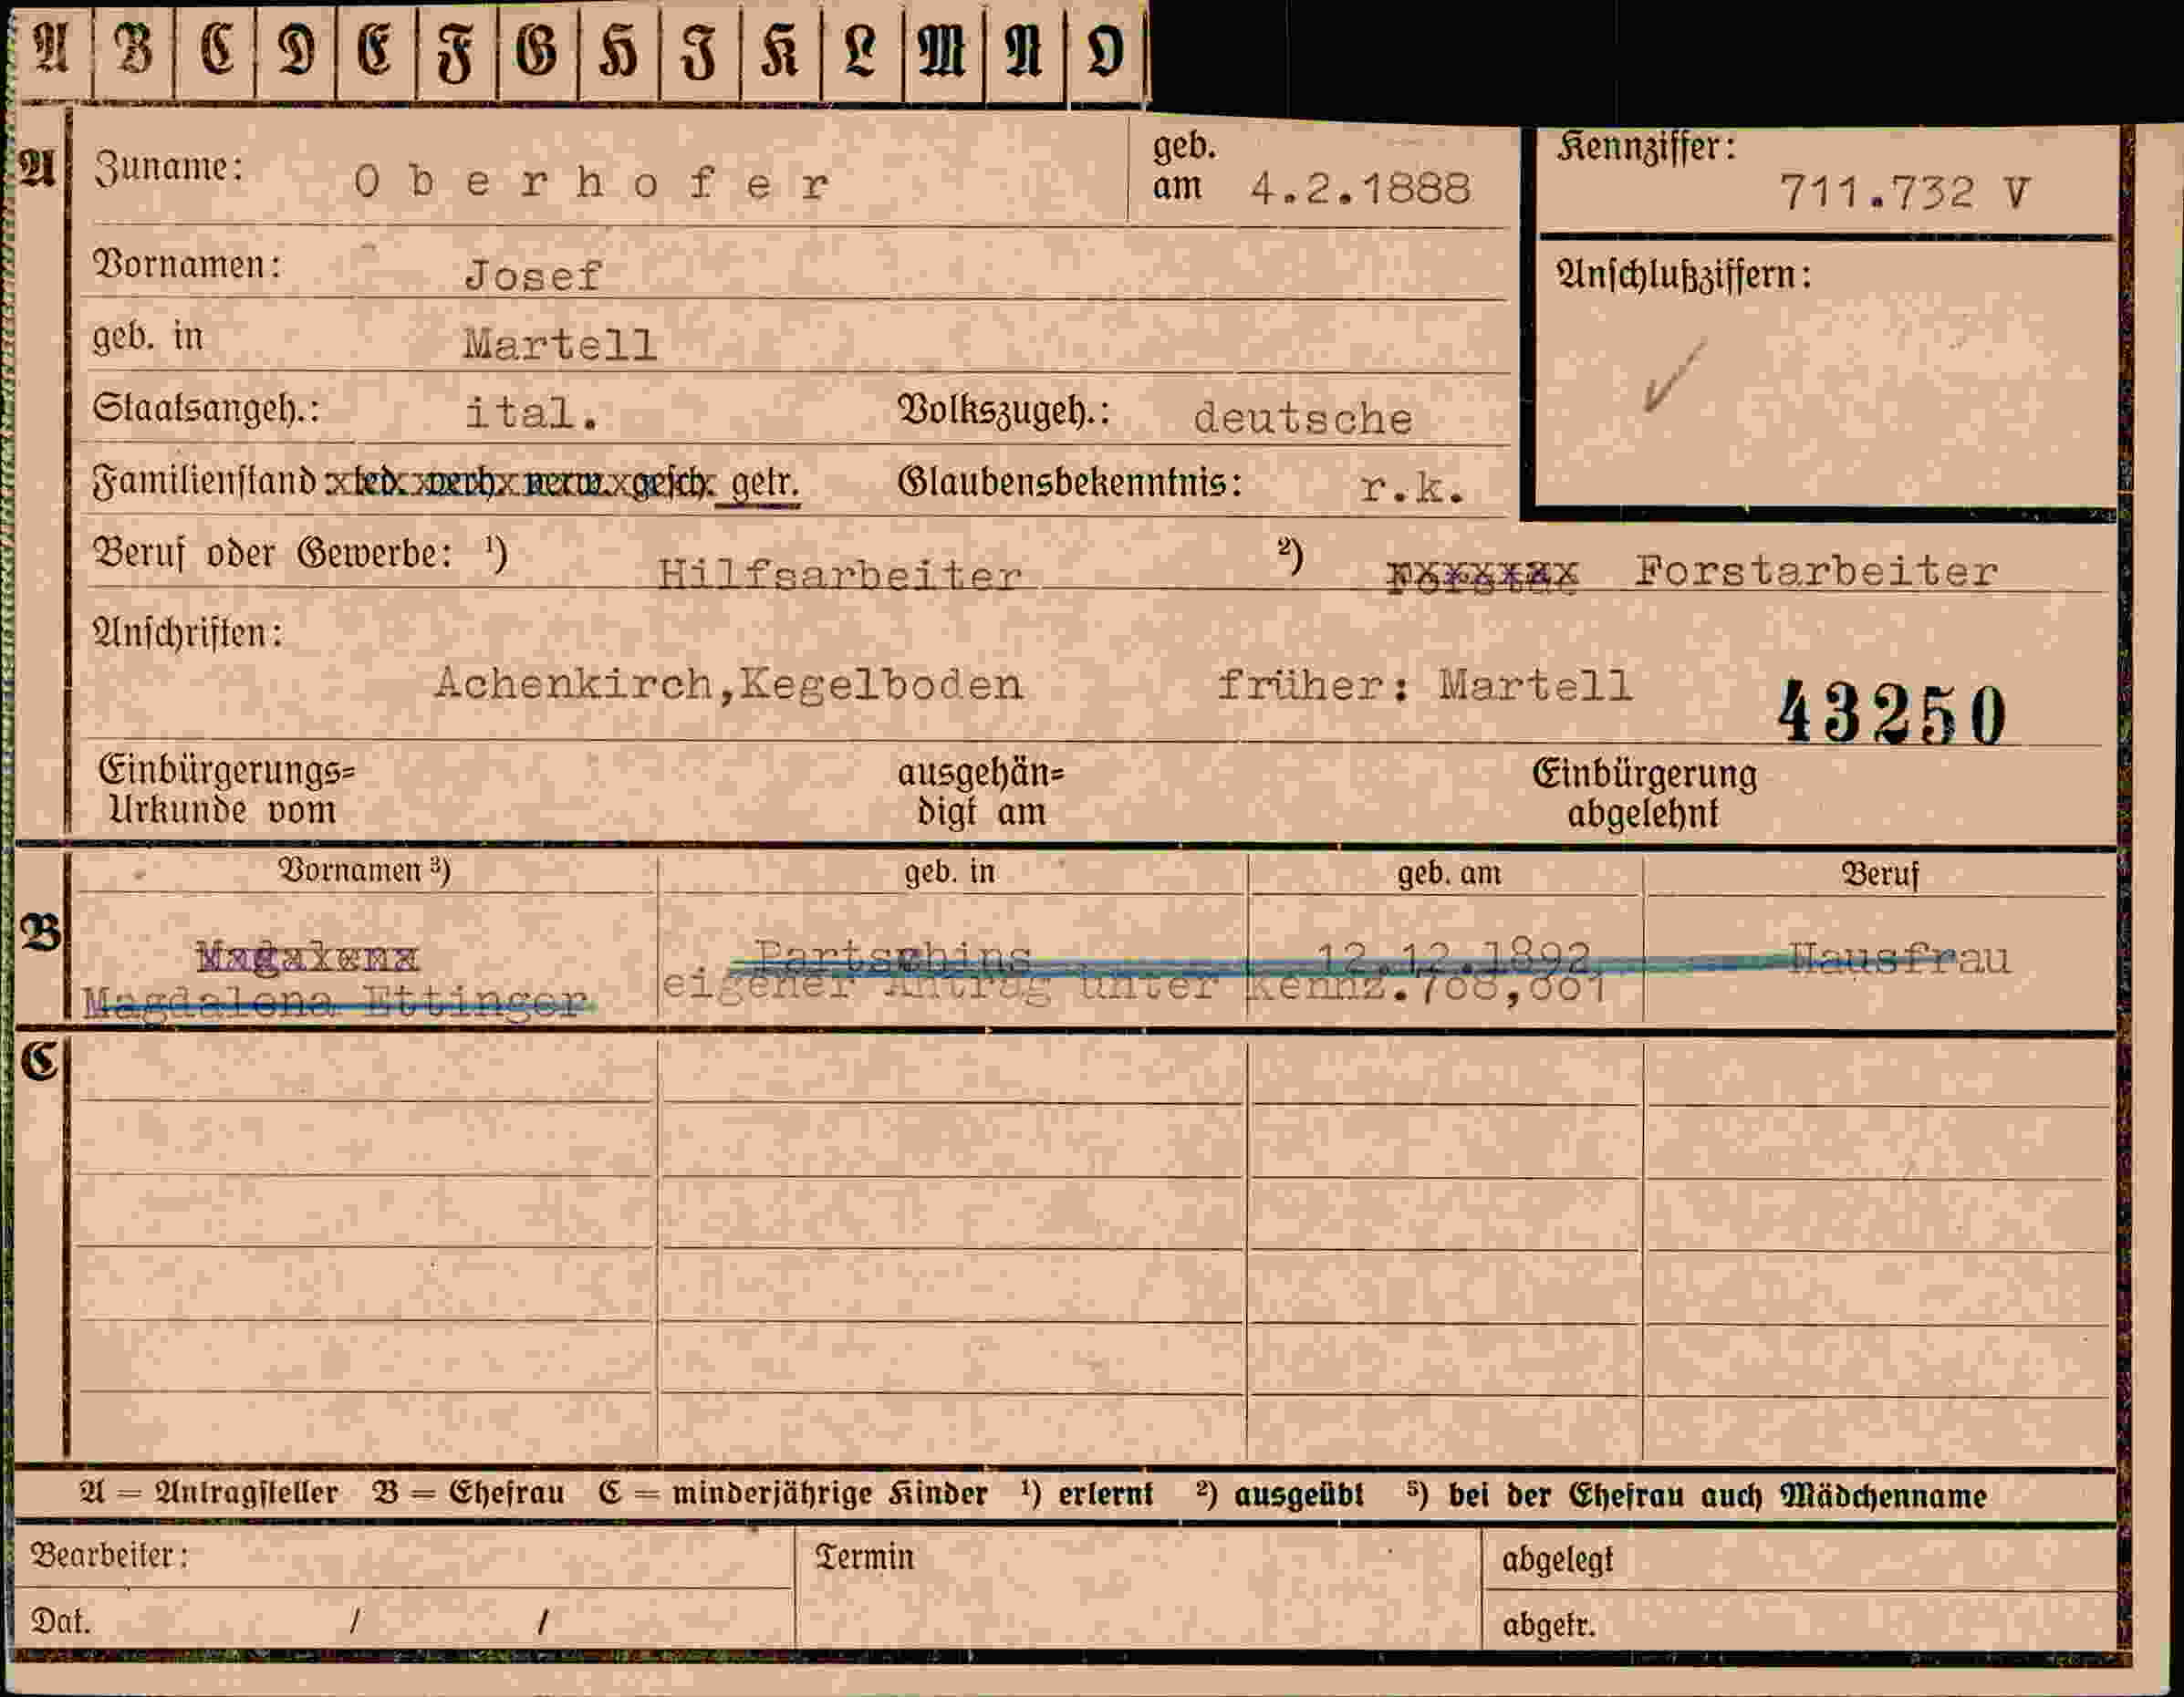 A B C D E F G H I K L M N O
A Zuname: Oberhofer geb. am 4.2.1888 Kennziffer: 711.732 V
Vornamen: Josef Anschlußziffern:
geb. in Martell
Staatsangeh.: ital. Volkszugeh.: deutsche
Familienstand led. verh. verw. gesch. getr. Glaubensbekenntnis: r.k.
Beruf oder Gewerbe: ¹) Hilfsarbeiter ²) Forstarbeiter
Anschriften:
Achenkirch,Kegelboden früher: Martell 43250
Einbürgerungs= ausgehän= Einbürgerung
Urkunde vom digt am abgelehnt
Vornamen ³) geb. in geb. am Beruf
B Partschins 12.12.1892 Hausfrau
Magdalena Ettinger eigener Antrag unter Kennz.
C
A = Antragsteller B = Ehefrau C = minderjährige Kinder ¹) erlernt ²) ausgeübt ³) bei der Ehefrau auch Mädchenname
Bearbeiter: Termin abgelegt
Dat. / / abgetr.